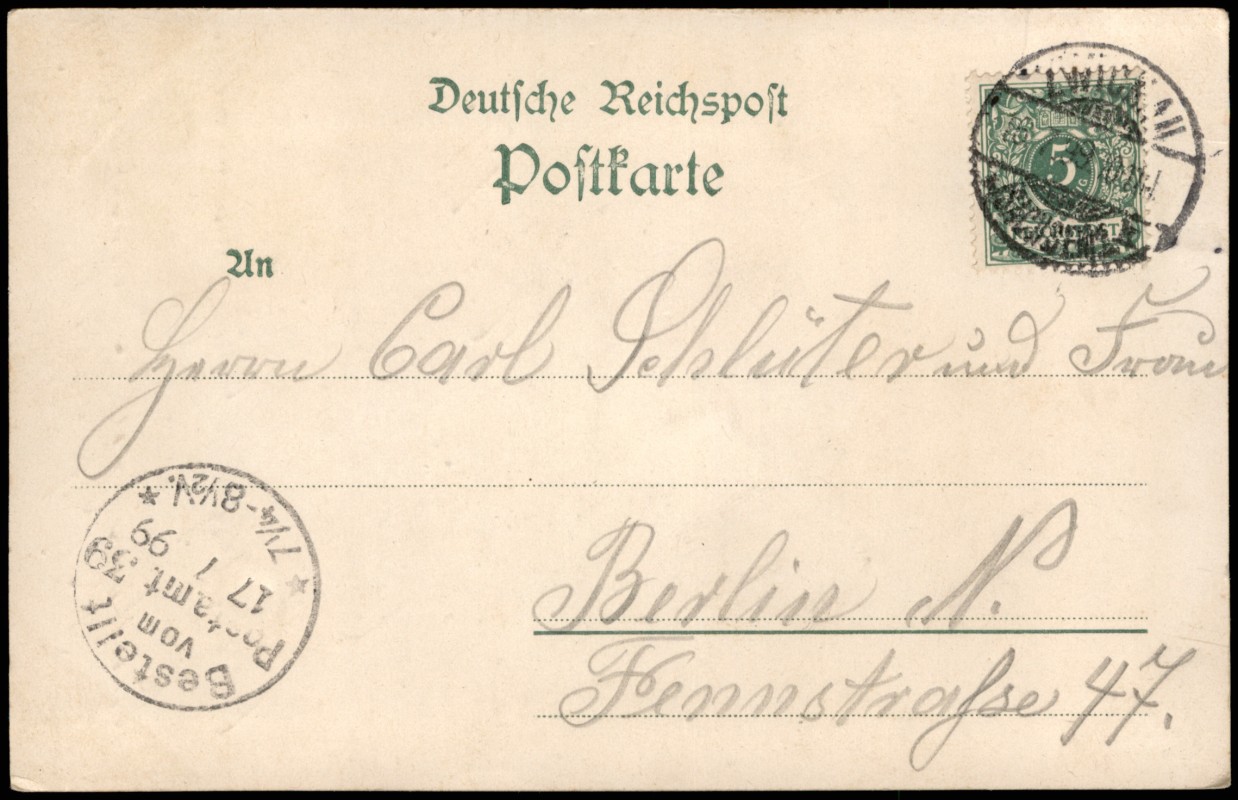 Deutsche Reichspost
Postkarte
ZWICKAU
5
REICHSPOST
An
Herrn Carl Schlüter und Frau
Berlin N.
Fennstraße 47.
Bestellt
vom
Postamt 39
17 7 99
7¼-8½N.